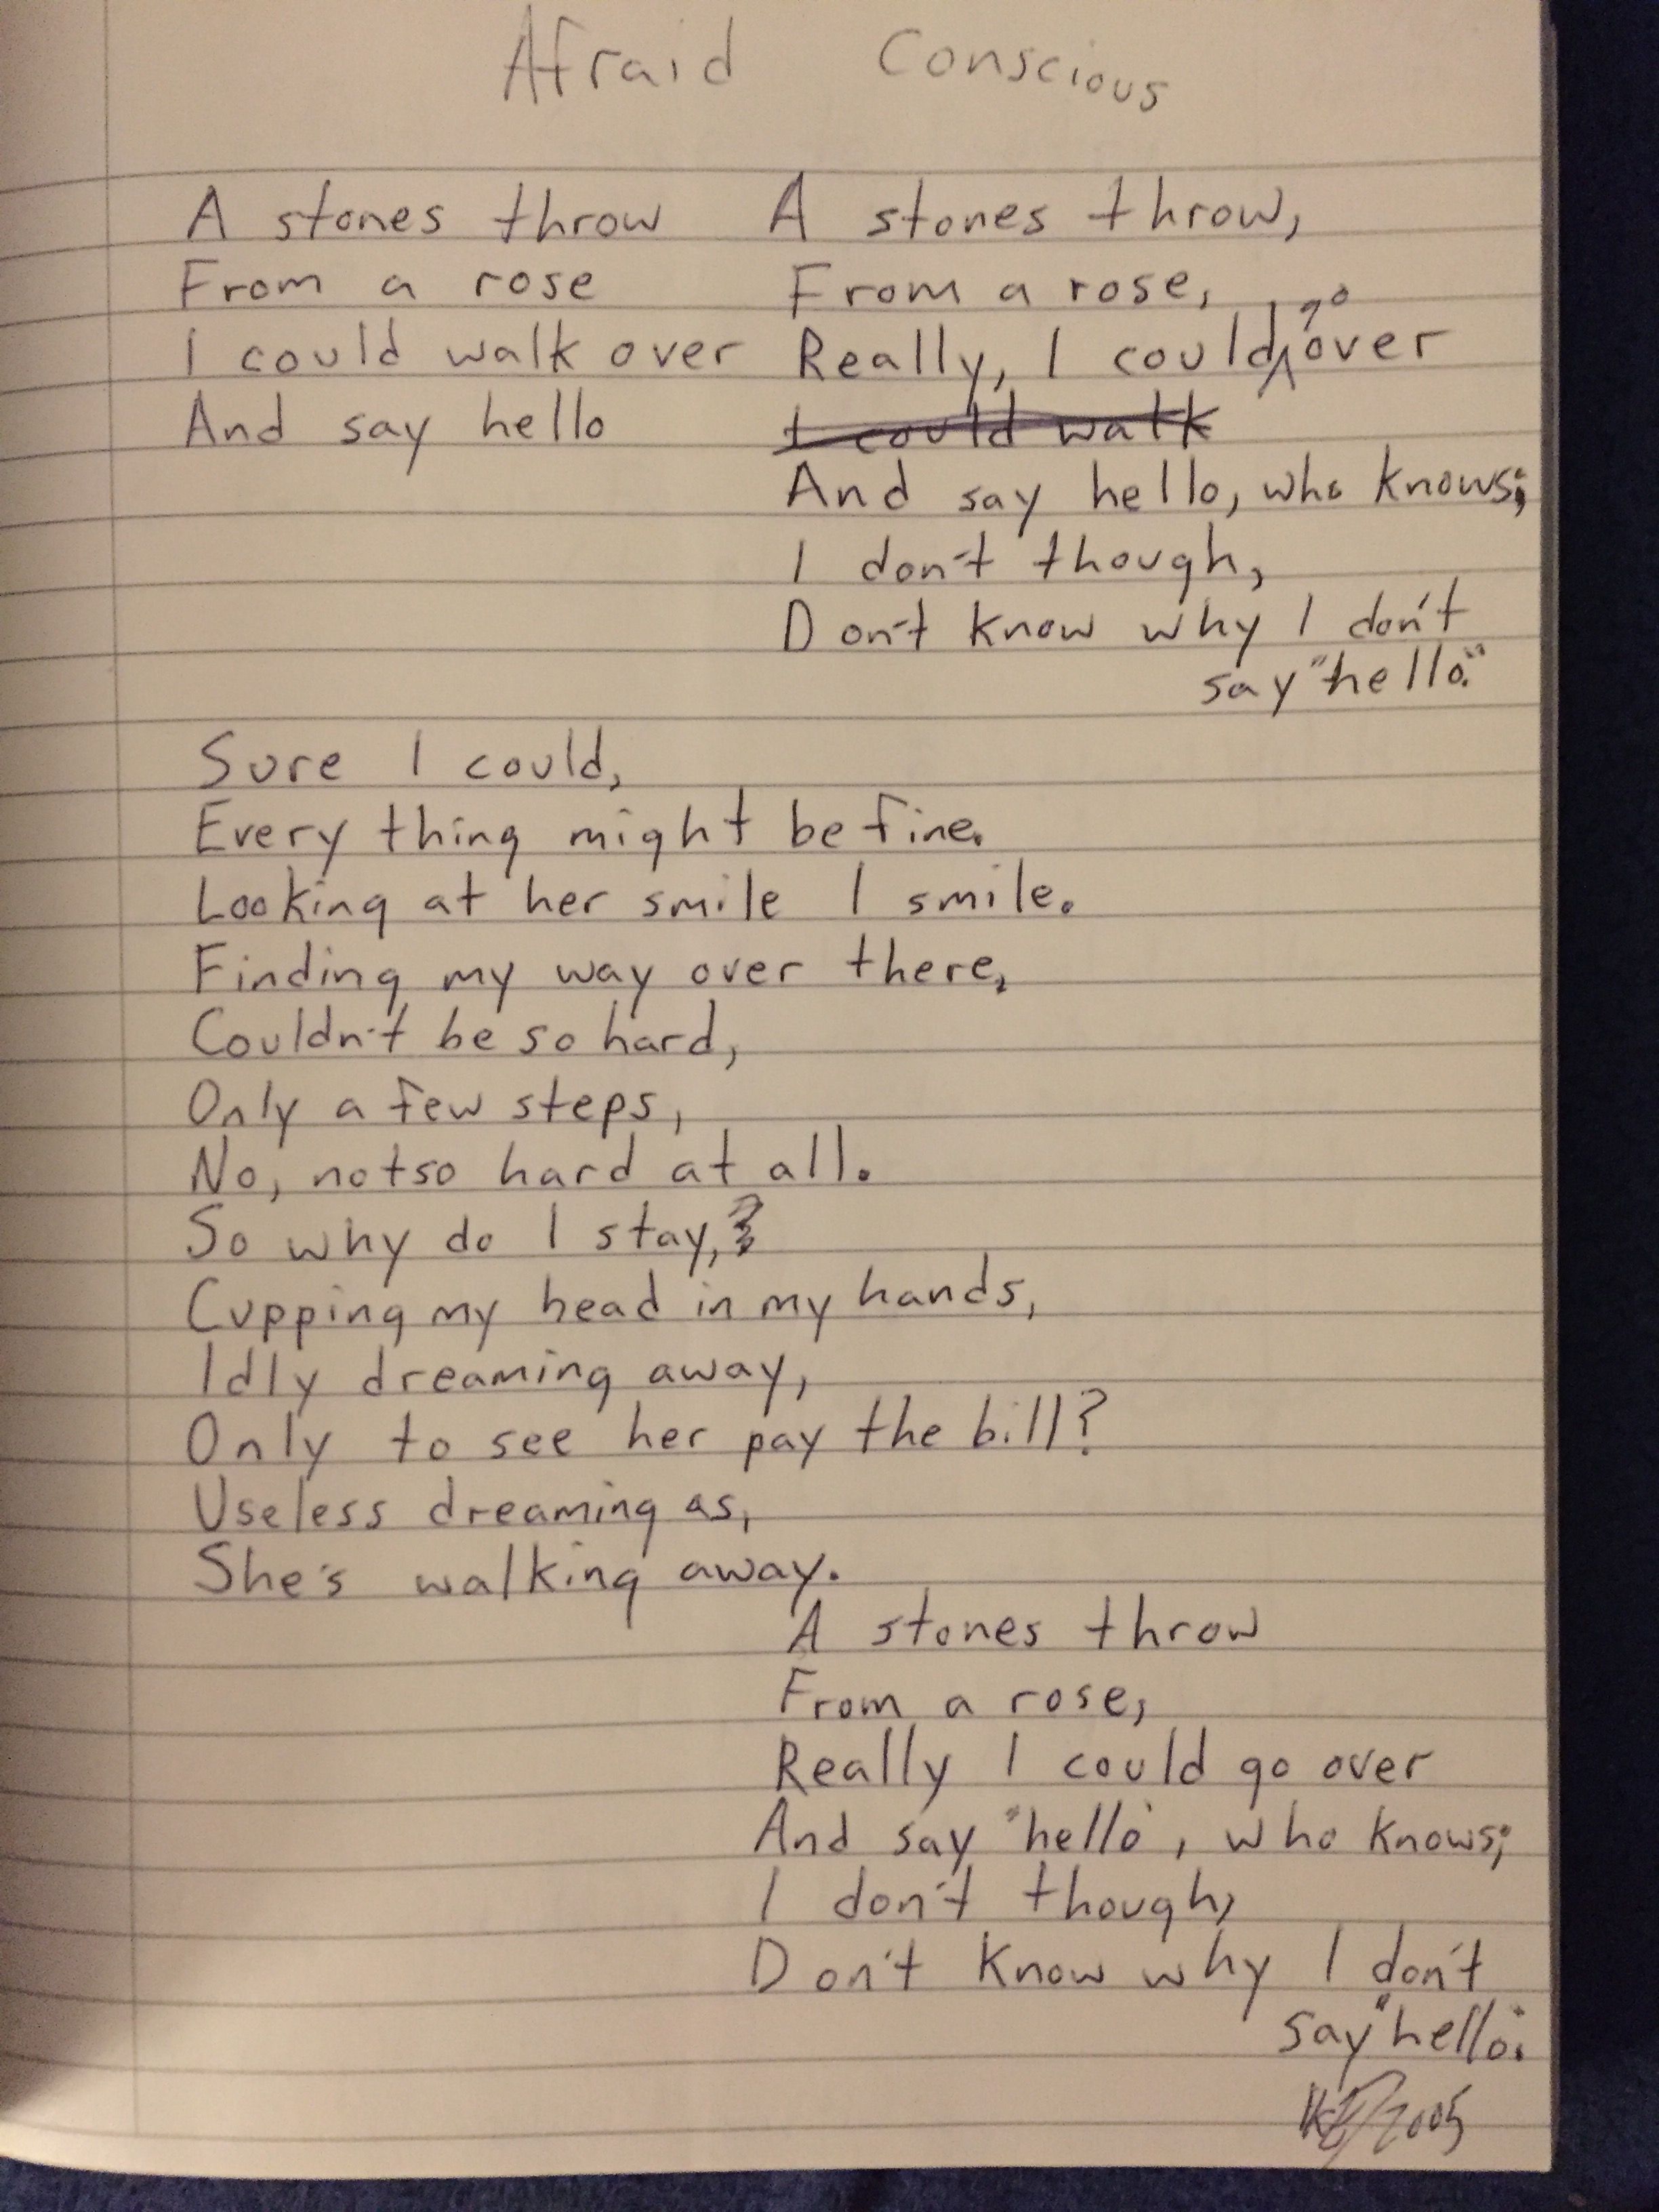 Afraid Conscious
A stones throw
From a rose
I could walk over
And say hello
A stones throw,
From a rose,
Really, I could go over
I could walk
And say hello, who knows;
I don't though,
Don't know why I don't
say "hello."
Sure I could,
Every thing might be fine.
Looking at her smile I smile.
Finding my way over there,
Couldn't be so hard,
Only a few steps,
No, not so hard at all.
So why do I stay,
Cupping my head in my hands,
Idly dreaming away,
Only to see her pay the bill?
Useless dreaming as,
She's walking away.
A stones throw
From a rose,
Really I could go over
And say "hello", who knows;
I don't though,
Don't know why I don't
say "hello".
2005